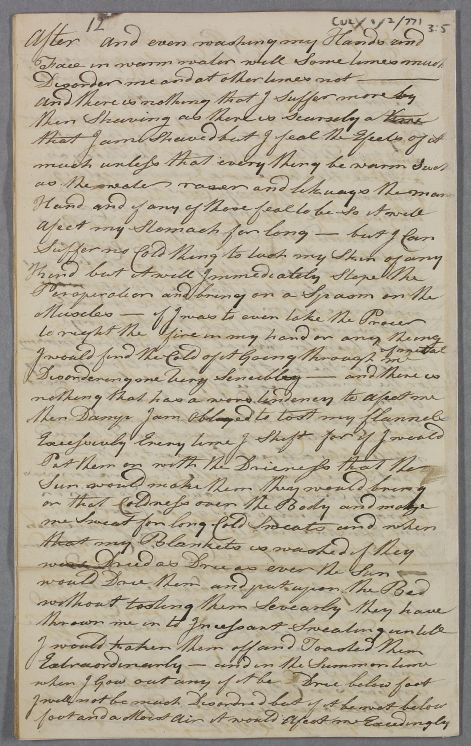 12
CUL/1/2/771
3:5
After and even washing my Hands and
Face in warm water will Some times much
Disorder me and at other times not
and there is nothing that I Suffer more by
then Shaving as there is Scarsely a time
that I am Shaved but I feal the Efects of it
much unless that every thing be warm Such
as the water rasor and likways the man
Hand and if any of those feal to be So it will
Afect my Stomach for long — but I Can
Suffer no Cold thing to tuch my Skin of any
Kind but it will Immediately Stope the
Perspiration and bring on a Spasm on the
Muscles — if I was to even take the Procer
to right the fire in my hand or any thing
of mettal
I would find the Cold of it Going through me
Disordering me Very Sencibley — and there is
nothing that has a wors tendency to afect me
then Damp I am Oblaged to tost my flannels
Excessively Every time I Shift for if I would
Put them on with the Drieness that the
Sun would make them they would bring
on that Coldness over the Body and make
me Sweat for long Cold Sweats and when
that my Blankets is washed if they
was Dried as Drie as ever the Sun
would Drie them and put upon the Bed
without tosting them Sevearly they have
thrown me in to Incessant Sweating untill
I would taken them off and Toasted them
Extraordinarly — and in the Summer time
when I Gow out any if it be Drie below foot
I will not be much Disordred but if it be wet below
foot and a Moist Air it would Afect me Excedingly